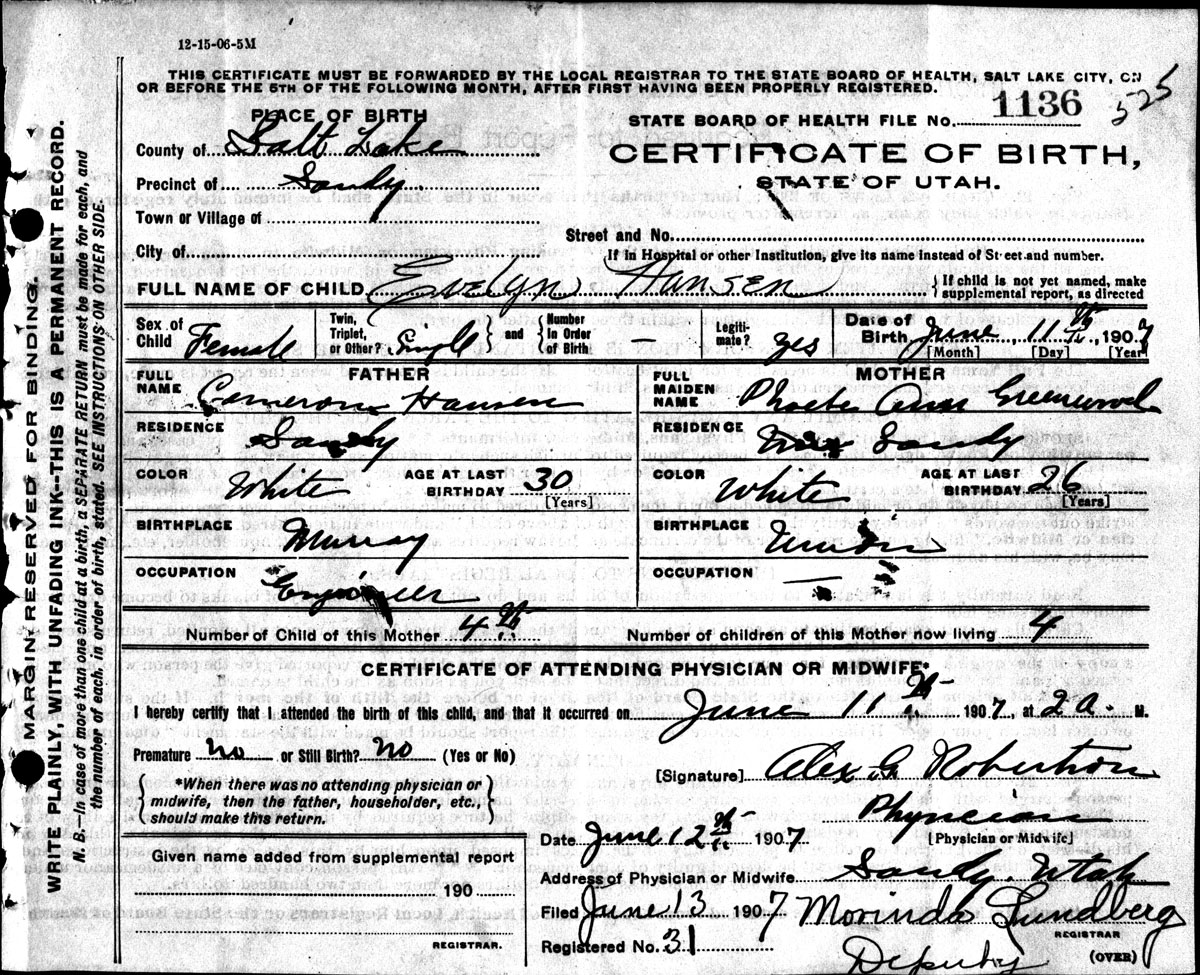 12-15-06-5M
THIS CERTIFICATE MUST BE FORWARDED BY THE LOCAL REGISTRAR TO THE STATE BOARD OF HEALTH, SALT LAKE CITY, ON
OR BEFORE THE 5TH OF THE FOLLOWING MONTH, AFTER FIRST HAVING BEEN PROPERLY REGISTERED.
525
PLACE OF BIRTH
STATE BOARD OF HEALTH FILE NO. 1136
County of Salt Lake
CERTIFICATE OF BIRTH,
Precinct of Sandy
STATE OF UTAH.
Town or Village of
Street and No.
City of
If in Hospital or other Institution, give its name instead of Street and number.
FULL NAME OF CHILD Evelyn Hansen
If child is not yet named, make supplemental report, as directed
Sex of Child Female
Twin, Triplet, or Other? Single and Number In Order of Birth —
Legitimate? yes
Date of Birth June 11th, 1907
[Month] [Day] [Year]
FATHER
FULL NAME Cameron Hansen
MOTHER
FULL MAIDEN NAME Phoebe Ann Greenwood
RESIDENCE Sandy
RESIDENCE Sandy
COLOR White AGE AT LAST BIRTHDAY 30 [Years]
COLOR White AGE AT LAST BIRTHDAY 26 [Years]
BIRTHPLACE Murray
BIRTHPLACE Union
OCCUPATION Engineer
OCCUPATION —
Number of Child of this Mother 4th
Number of children of this Mother now living 4
CERTIFICATE OF ATTENDING PHYSICIAN OR MIDWIFE*
I hereby certify that I attended the birth of this child, and that it occurred on June 11th 1907, at 2 a. M.
Premature no or Still Birth? no (Yes or No)
*When there was no attending physician or
midwife, then the father, householder, etc.,
should make this return.
[Signature] Alex. G. Robertson
Physician
[Physician or Midwife]
Date June 12th 1907
Given name added from supplemental report
190
REGISTRAR.
Address of Physician or Midwife Sandy, Utah
Filed June 13 1907 Morinda Lundberg
REGISTRAR
Registered No. 31 Deputy
(OVER)
MARGIN RESERVED FOR BINDING.
WRITE PLAINLY WITH UNFADING INK---THIS IS A PERMANENT RECORD.
N. B.—In case of more than one child at a birth, a SEPARATE RETURN must be made for each, and
the number of each, in order of birth, stated. SEE INSTRUCTIONS ON OTHER SIDE.